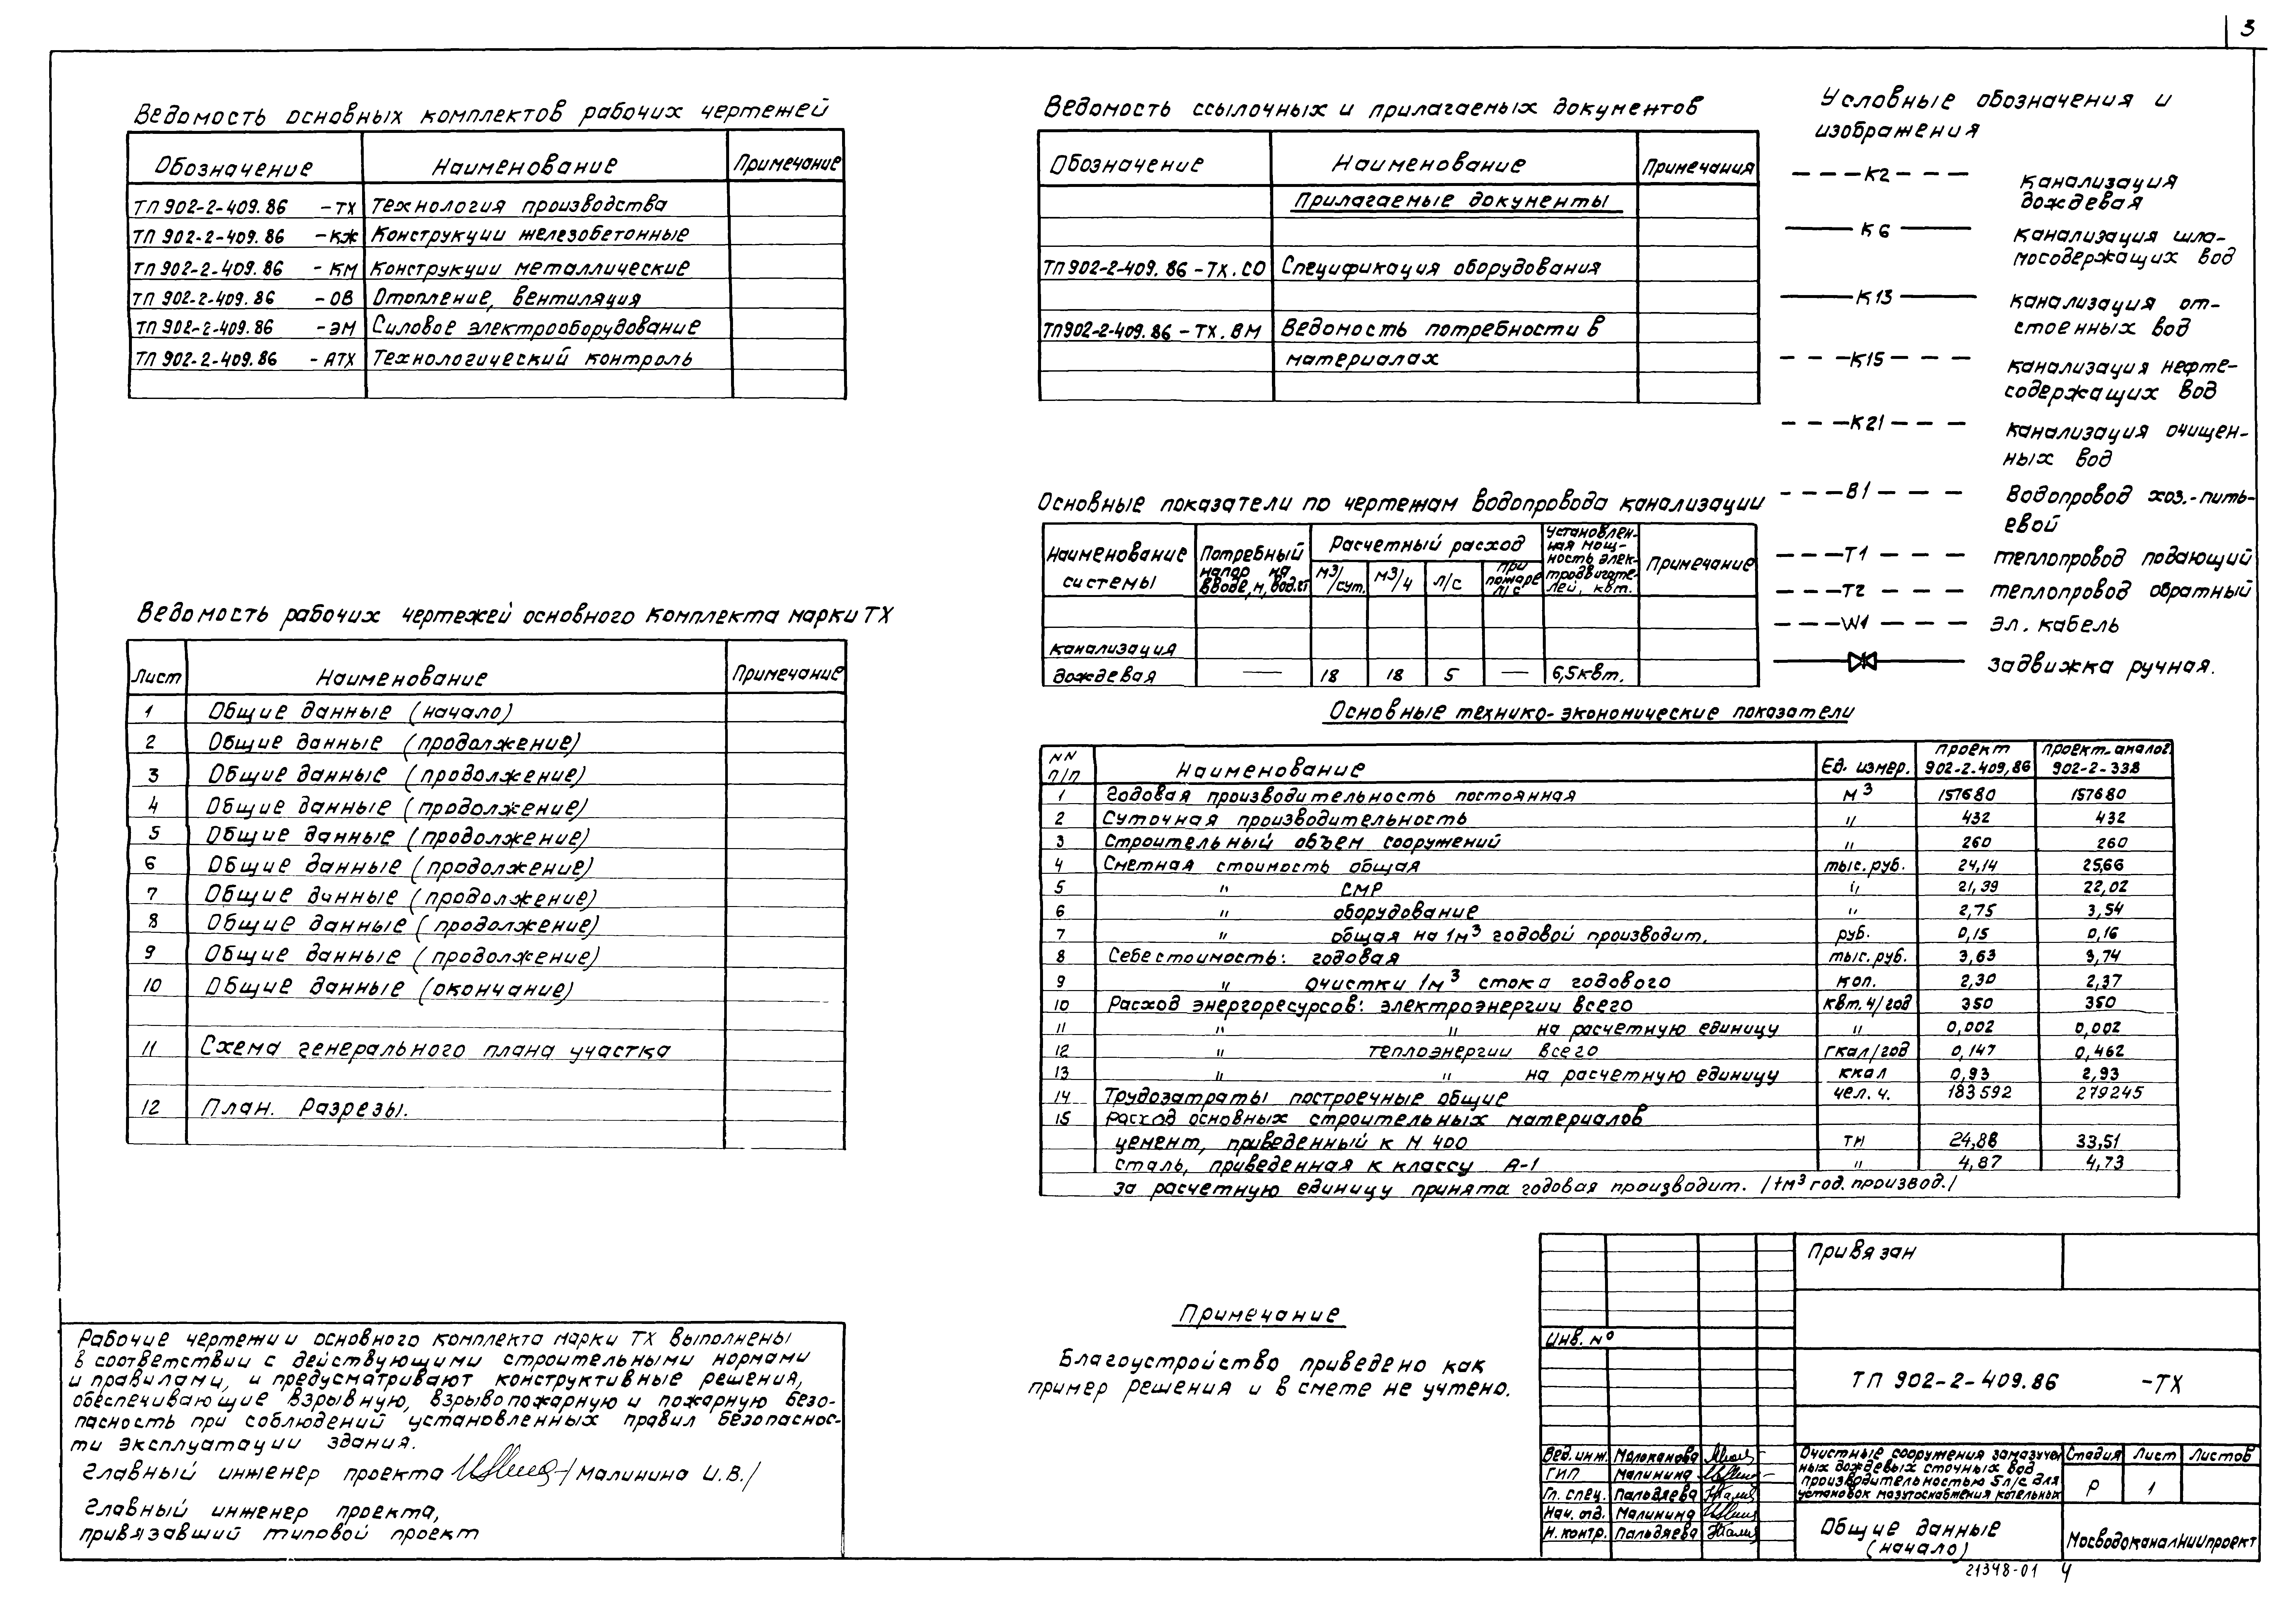 3
Ведомость основных комплектов рабочих чертежей
Обозначение Наименование Примечание
ТП 902-2-409.86 -ТХ Технология производства
ТП 902-2-409.86 -КЖ Конструкции железобетонные
ТП 902-2-409.86 -КМ Конструкции металлические
ТП 902-2-409.86 -ОВ Отопление, вентиляция
ТП 902-2-409.86 -ЭМ Силовое электрооборудование
ТП 902-2-409.86 -АТХ Технологический контроль
Ведомость рабочих чертежей основного комплекта марки ТХ
Лист Наименование Примечание
1 Общие данные (начало)
2 Общие данные (продолжение)
3 Общие данные (продолжение)
4 Общие данные (продолжение)
5 Общие данные (продолжение)
6 Общие данные (продолжение)
7 Общие данные (продолжение)
8 Общие данные (продолжение)
9 Общие данные (продолжение)
10 Общие данные (окончание)
11 Схема генерального плана участка
12 План. Разрезы.
Рабочие чертежи и основного комплекта марки ТХ выполнены
в соответствии с действующими строительными нормами
и правилами, и предусматривают конструктивные решения,
обеспечивающие взрывную, взрывопожарную и пожарную безо-
пасность при соблюдений установленных правил безопаснос-
ти эксплуатации здания.
Главный инженер проекта /Малинина И.В./
Главный инженер проекта,
привязавший типовой проект
Ведомость ссылочных и прилагаемых документов
Обозначение Наименование Примечания
Прилагаемые документы
ТП902-2-409.86-ТХ.СО Спецификация оборудования
ТП902-2-409.86-ТХ.ВМ Ведомость потребности в
материалах
Основные показатели по чертежам водопровода канализации
Наименование системы Потребный напор на вводе, м, вод.ст Расчетный расход Установлен-ная мощ-ность элек-тродвигате-лей, квт. Примечание
м3/сут. м3/ч л/с при пожаре л/с
канализация
дождевая — 18 18 5 — 6,5квт.
Условные обозначения и
изображения
К2 канализация
дождевая
К6 канализация шла-
мосодержащих вод
К13 канализация от-
стоенных вод
К15 канализация нефте-
содержащих вод
К21 канализация очищен-
ных вод
В1 водопровод хоз.-пить-
евой
Т1 теплопровод подающий
Т2 теплопровод обратный
W1 эл. кабель
задвижка ручная.
Основные технико-экономические показатели
NN п/п Наименование Ед. измер. проект 902-2-409,86 проект-аналог 902-2-338
1 Годовая производительность постоянная м3 157680 157680
2 Суточная производительность " 432 432
3 Строительный объем сооружений " 260 260
4 Сметная стоимость общая тыс.руб. 24,14 25,66
5 " СМР " 21,39 22,02
6 " оборудование " 2,75 3,54
7 " общая на 1м3 годовой производит. руб. 0,15 0,16
8 Себестоимость: годовая тыс.руб. 3,63 3,74
9 " очистки 1м3 стока годового коп. 2,30 2,37
10 Расход энергоресурсов: электроэнергии всего квт.ч/год 350 350
11 " " на расчетную единицу " 0,002 0,002
12 " теплоэнергии всего гкал/год 0,147 0,462
13 " " на расчетную единицу ккал 0,93 2,93
14 Трудозатраты построечные общие чел.ч. 183592 279245
15 Расход основных строительных материалов
цемент, приведенный к М 400 тн 24,88 33,51
сталь, приведенная к классу А-1 " 4,87 4,73
за расчетную единицу принята годовая производит. /1м3 год. производ./
Примечание
Благоустройство приведено как
пример решения и в смете не учтено.
Привязан
Инв. №
ТП 902-2-409.86 -ТХ
Вед. инж. Малоканова
ГИП Малинина
Гл. спец. Пальдяева
Нач. отд. Малинина
Н. контр. Пальдяева
Очистные сооружения замазучен
ных дождевых сточных вод
производительностью 5л/с для
установок мазутоснабжения котельных
Стадия Лист Листов
Р 1
Общие данные
(начало)
МосводоканалНИИпроект
21348-01 4